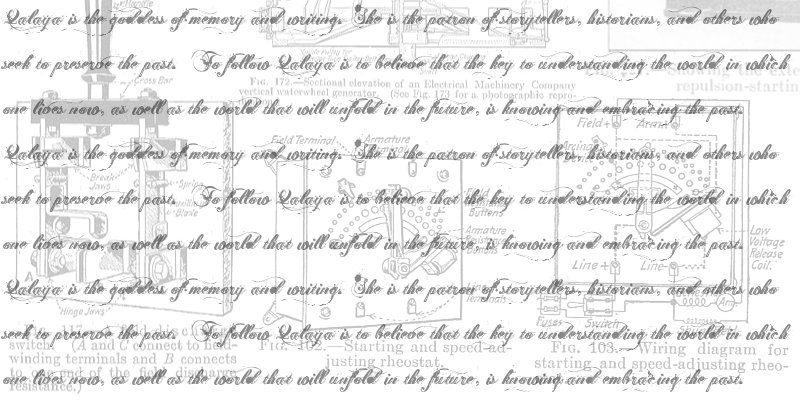 Qalaya is the goddess of memory and writing. She is the patron of storytellers, historians, and others who
seek to preserve the past. To follow Qalaya is to believe that the key to understanding the world in which
one lives now, as well as the world that will unfold in the future, is knowing and embracing the past.
Qalaya is the goddess of memory and writing. She is the patron of storytellers, historians, and others who
seek to preserve the past. To follow Qalaya is to believe that the key to understanding the world in which
one lives now, as well as the world that will unfold in the future, is knowing and embracing the past.
Qalaya is the goddess of memory and writing. She is the patron of storytellers, historians, and others who
seek to preserve the past. To follow Qalaya is to believe that the key to understanding the world in which
one lives now, as well as the world that will unfold in the future, is knowing and embracing the past.
Handle
Cross Bar
FIG. 172.—Sectional elevation of an Electrical Machinery Company
vertical waterwheel generator. (See Fig. 173 for a photographic repro-
showing the exte
repulsion-startin
Break
Jaws
Spring
Blade
A
Hinge Jaws
switch. (A and C connect to field-
winding terminals and B connects
to one end of the field discharge
resistance.)
Field Terminal
Armature
Field
Buttons
Armature
Buttons
Terminals
Starting and speed-ad-
justing rheostat.
Field+
Arm+
Arcing
Low
Voltage
Release
Coil.
Line+
Line-
Fuses
Switch
Arm
FIG. 103.—Wiring diagram for
starting and speed-adjusting rheo-